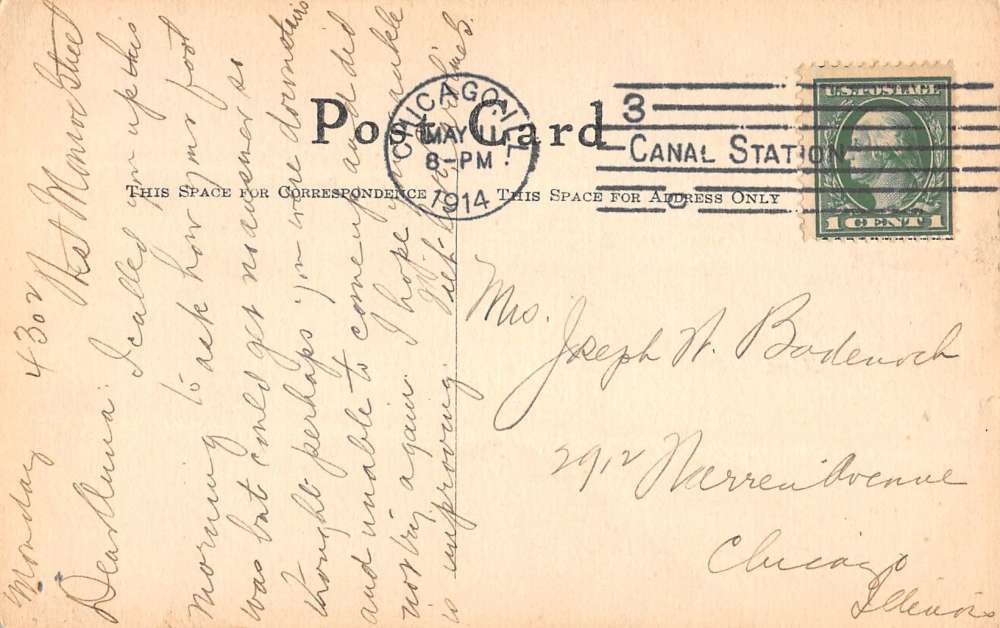 Post Card
THIS SPACE FOR CORRESPONDENCE
THIS SPACE FOR ADDRESS ONLY
CHICAGO, ILL.
MAY 11
8-PM
1914
3
CANAL STATION
U.S. POSTAGE
1 CENT 1
Monday 4302 West Monroe Street
Dear Anna: I called you up this
morning to ask how your foot
was but could get no answer so
thought perhaps you were downstairs
and unable to come up and did
not try again. I hope your ankle
is improving. With
Mrs.
Joseph W. Badenoch
2912 Warren Avenue
Chicago
Illinois